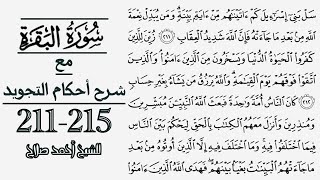 سُورَةُ البَقَرَةِ
مع
شرح أحكام التجويد
211-215
للشيخ أحمد صلاح
سَلْ بَنِىٓ إِسْرَٰٓءِيلَ كَمْ ءَاتَيْنَٰهُم مِّنْ ءَايَةٍۭ بَيِّنَةٍ وَمَن يُبَدِّلْ نِعْمَةَ
ٱللَّهِ مِنۢ بَعْدِ مَا جَآءَتْهُ فَإِنَّ ٱللَّهَ شَدِيدُ ٱلْعِقَابِ ٢١١ زُيِّنَ لِلَّذِينَ
كَفَرُوا۟ ٱلْحَيَوٰةُ ٱلدُّنْيَا وَيَسْخَرُونَ مِنَ ٱلَّذِينَ ءَامَنُوا۟ وَٱلَّذِينَ
ٱتَّقَوْا۟ فَوْقَهُمْ يَوْمَ ٱلْقِيَٰمَةِ وَٱللَّهُ يَرْزُقُ مَن يَشَآءُ بِغَيْرِ حِسَابٍ
٢١٢ كَانَ ٱلنَّاسُ أُمَّةً وَٰحِدَةً فَبَعَثَ ٱللَّهُ ٱلنَّبِيِّۦنَ مُبَشِّرِينَ
وَمُنذِرِينَ وَأَنزَلَ مَعَهُمُ ٱلْكِتَٰبَ بِٱلْحَقِّ لِيَحْكُمَ بَيْنَ ٱلنَّاسِ
فِيمَا ٱخْتَلَفُوا۟ فِيهِ وَمَا ٱخْتَلَفَ فِيهِ إِلَّا ٱلَّذِينَ أُوتُوهُ مِنۢ بَعْدِ
مَا جَآءَتْهُمُ ٱلْبَيِّنَٰتُ بَغْيًۢا بَيْنَهُمْ فَهَدَى ٱللَّهُ ٱلَّذِينَ ءَامَنُوا۟